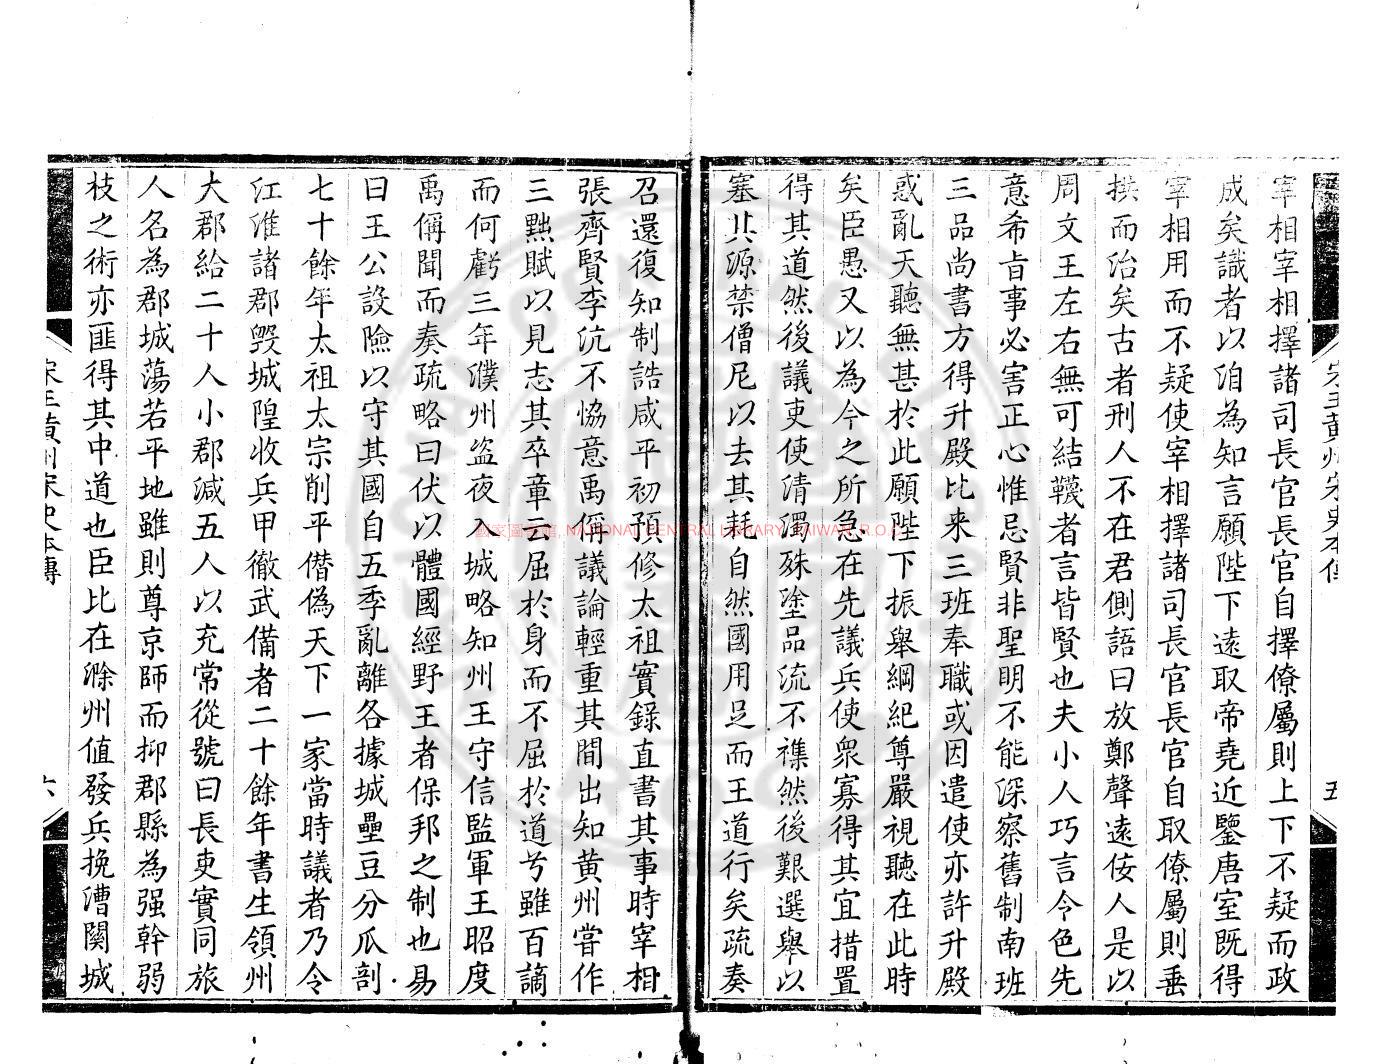 宰相宰相擇諸司長官長官自擇僚屬則上下不疑而政
成矣識者以洎為知言願陛下遠取帝堯近鑒唐室既得
宰相用而不疑使宰相擇諸司長官長官自取僚屬則垂
拱而治矣古者刑人不在君側語曰放鄭聲遠佞人是以
周文王左右無可結韈者言皆賢也夫小人巧言令色先
意希旨事必害正心惟忌賢非聖明不能深察舊制南班
三品尚書方得升殿比來三班奉職或因遣使亦許升殿
惑亂天聽無甚於此願陛下振舉綱紀尊嚴視聽在此時
矣臣愚又以為今之所急在先議兵使衆寡得其宜措置
得其道然後議吏使清濁殊塗品流不襍然後艱選舉以
塞其源禁僧尼以去其耗自然國用足而王道行矣疏奏
宋王黃州宋史本傳
五
召還復知制誥咸平初預修太祖實錄直書其事時宰相
張齊賢李沆不恊意禹偁議論輕重其間出知黃州嘗作
三黜賦以見志其卒章云屈於身而不屈於道兮雖百謫
而何虧三年濮州盜夜入城略知州王守信監軍王昭度
禹偁聞而奏疏略曰伏以體國經野王者保邦之制也易
曰王公設險以守其國自五季亂離各據城壘豆分瓜剖
七十餘年太祖太宗削平僭偽天下一家當時議者乃令
江淮諸郡毀城隍收兵甲徹武備者二十餘年書生領州
大郡給二十人小郡減五人以充常從號曰長吏實同旅
人名為郡城蕩若平地雖則尊京師而抑郡縣為强幹弱
枝之術亦匪得其中道也臣比在滁州值發兵挽漕関城
宋王黃州宋史本傳
六
國家圖書館, NATIONAL CENTRAL LIBRARY, TAIWAN, R.O.C.